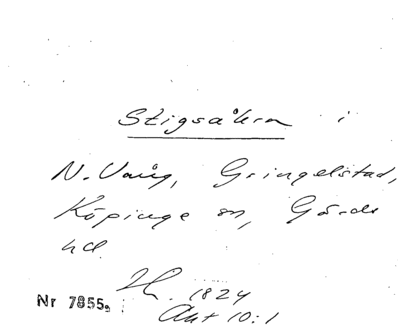 Stigsåkra i
N. Vång, Gringelstad,
Köpinge sn, Gärds
hd.
1824
Nr 7855
Akt 10:1